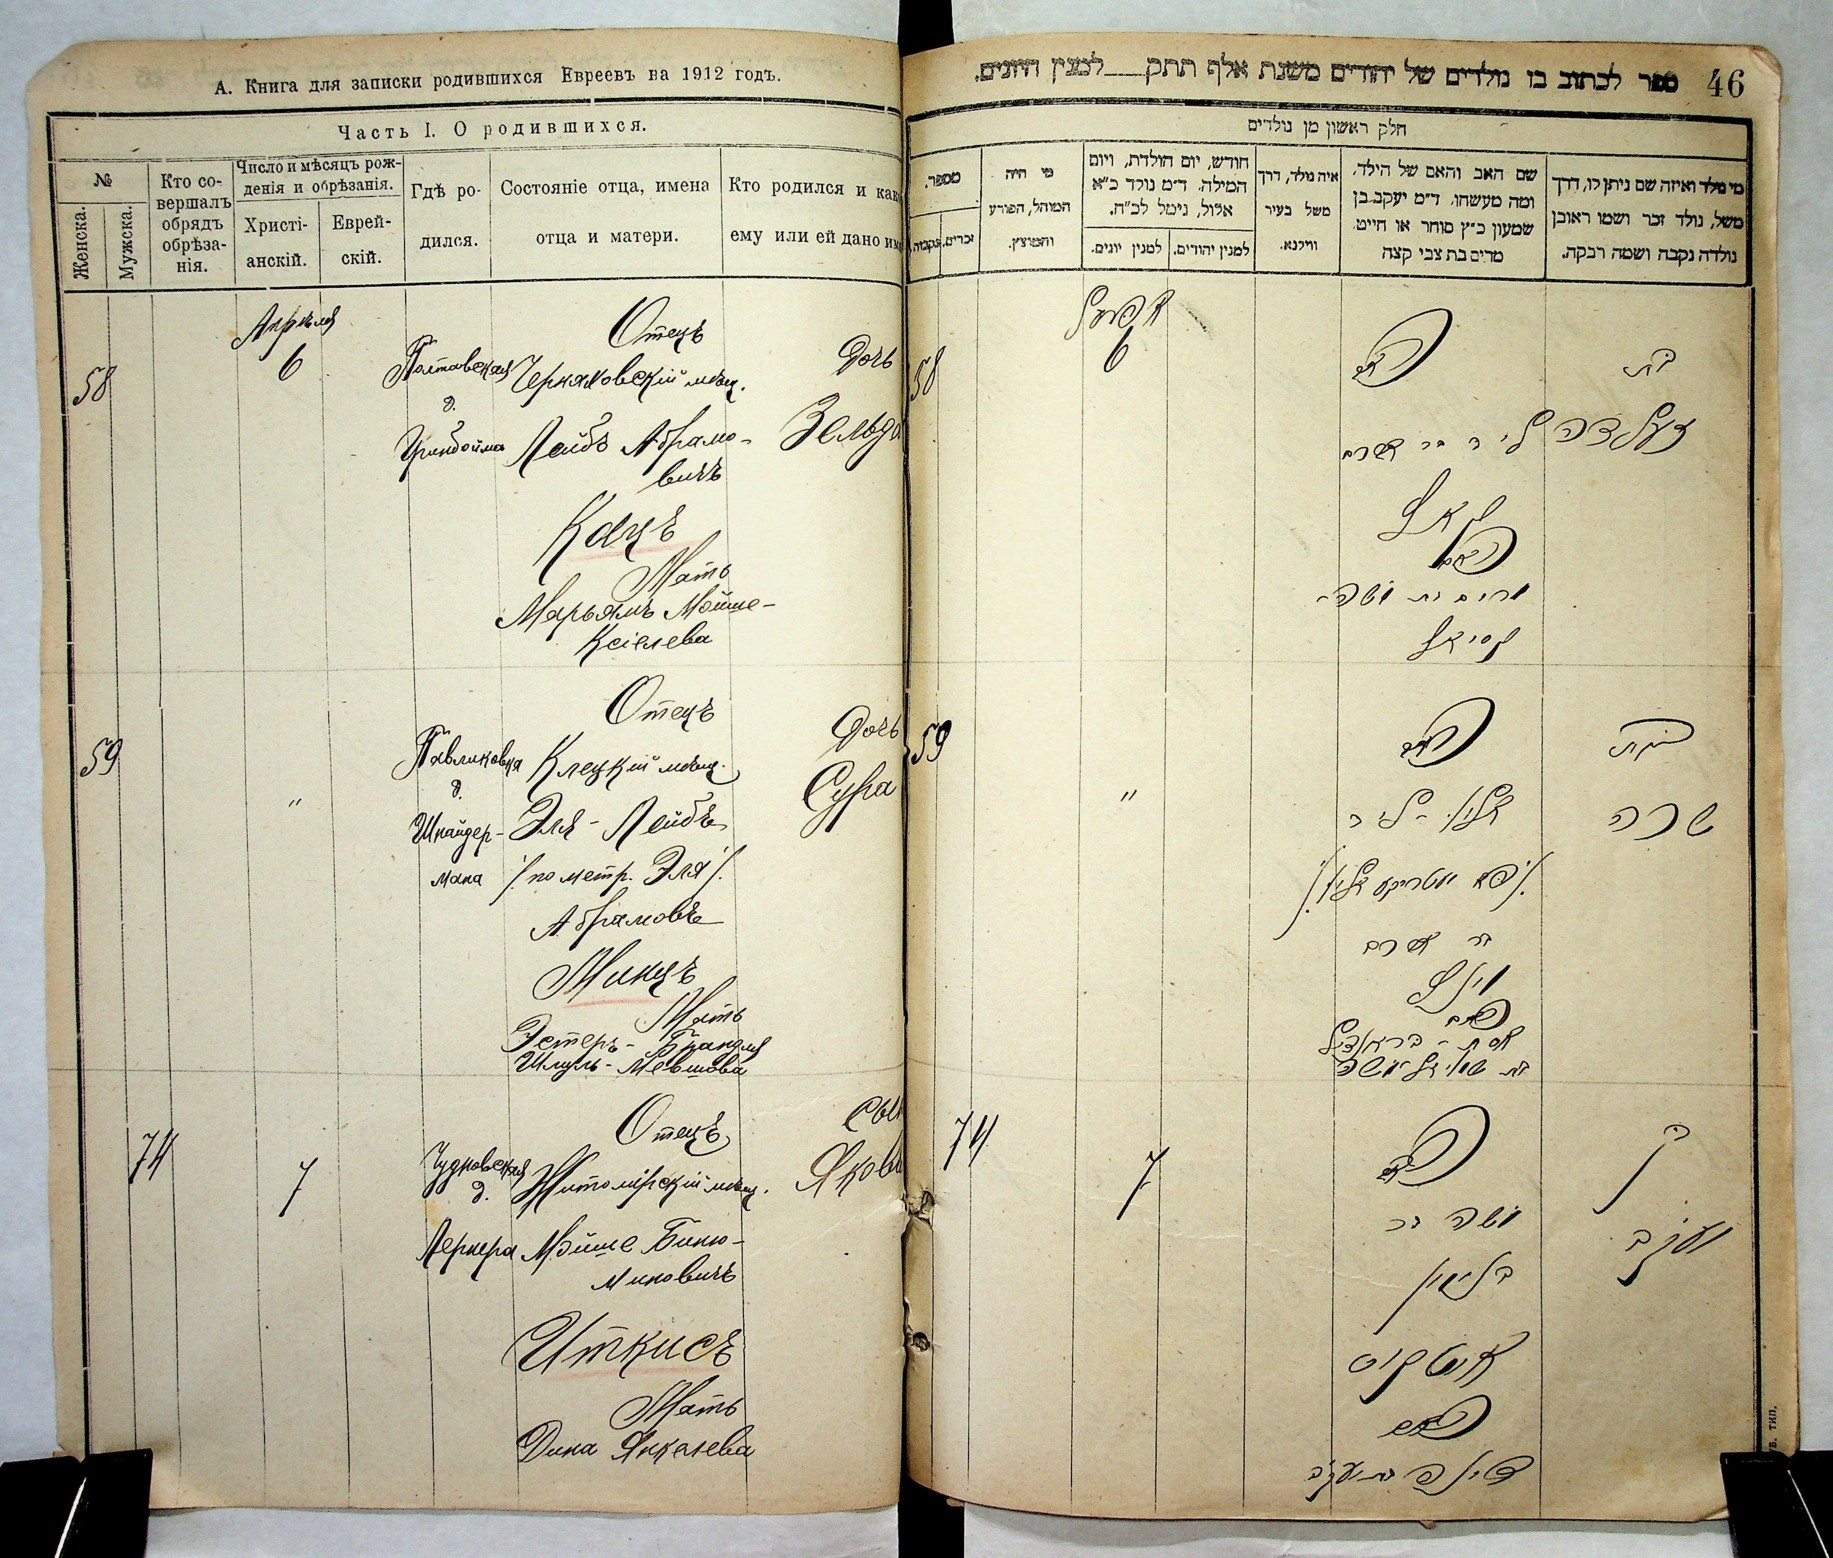 А. Книга для записки родившихся Евреевъ на 1912 годъ.
Часть I. О родившихся.
№
Женска.
Мужска.
Кто со-
вершалъ
обрядъ
обрѣза-
нія.
Число и мѣсяцъ рож-
денія и обрѣзанія.
Христі-
анскій.
Еврей-
скій.
Гдѣ ро-
дился.
Состояніе отца, имена
отца и матери.
Кто родился и как
ему или ей дано им
58
Апрѣля
6
Полтавская
д.
Отецъ
Черняховскій мѣщ.
Лейбъ Абрамо-
вичъ
Кацъ
Мать
Марьямъ Мойше-
Ксіелева
Дочь
Зельда
59
"
Павликовка
д.
Шнайдер-
мана
Отецъ
Клецкій мѣщ.
Эля-Лейбъ
/по метр. Эля/.
Абрамовъ
Минцъ
Мать
Эстеръ-Брандля
Шмуль-Мевшова
Дочь
Сура
74
7
Чудновская
д.
Лернера
Отецъ
Житомірскій мѣщ.
Мойше Биню-
миновичъ
Иткисъ
Мать
Дина Янкелева
Сын
Яковъ
46
ספר לכתוב בו נולדים של יהודים משנת אלף תתק למנין היונים.
חלק ראשון מן נולדים
מספר.
נקבות.
זכרים.
מי היה
המוהל, הפורע
והמוצץ.
חודש, יום הולדת, ויום
המילה. ד״מ נולד כ״א
אלול, נימל לכ״ח.
למנין יונים.
למנין יהודים.
איה נולד, דרך
משל בעיר
ווילנא.
שם האב והאם של הילד,
ומה מעשהו. ד״מ יעקב בן
שמעון כ״ץ סוחר או חייט
מרים בת צבי קצה
מי נולד ואיזה שם ניתן לו, דרך
משל, נולד זכר ושמו ראובן
נולדה נקבה ושמה רבקה.
58
אפריל
6
האב
ליב בר אברם
קאץ
האם
מרים בת משה-
קסיאל
בת
זעלדה
59
"
האב
אליי-ליב
בר אברם
מינץ
האם
אסתר-בראנדיל
בת
שרה
74
7
האב
משה בר
בנימין
איטקיס
האם
דינה בת יעקב
בן
יעקב